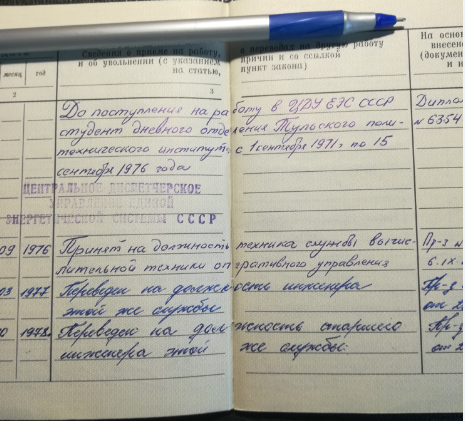 Сведения о приеме на работу, и переводах на другую работу
и об увольнении (с указанием причин и со ссылкой
на статью, пункт закона)
На осно
внесен
(докумен
и н
месяц год
2 3
До поступления на работу в ЦДУ ЕЭС СССР Диплом
студент дневного отделения Тульского поли- № 6354
технического института, с 1 сентября 1971 г по 15
сентября 1976 года
ЦЕНТРАЛЬНОЕ ДИСПЕТЧЕРСКОЕ
УПРАВЛЕНИЕ ЕДИНОЙ
ЭНЕРГЕТИЧЕСКОЙ СИСТЕМЫ СССР
09 1976 Принят на должность техника службы вычис- Пр-з №
лительной техники оперативного управления 6.IX
1977 Переведен на должность инженера Пр-з
этой же службы от 2
1978. Переведен на должность старшего Пр-з
инженера этой же службы. от 2